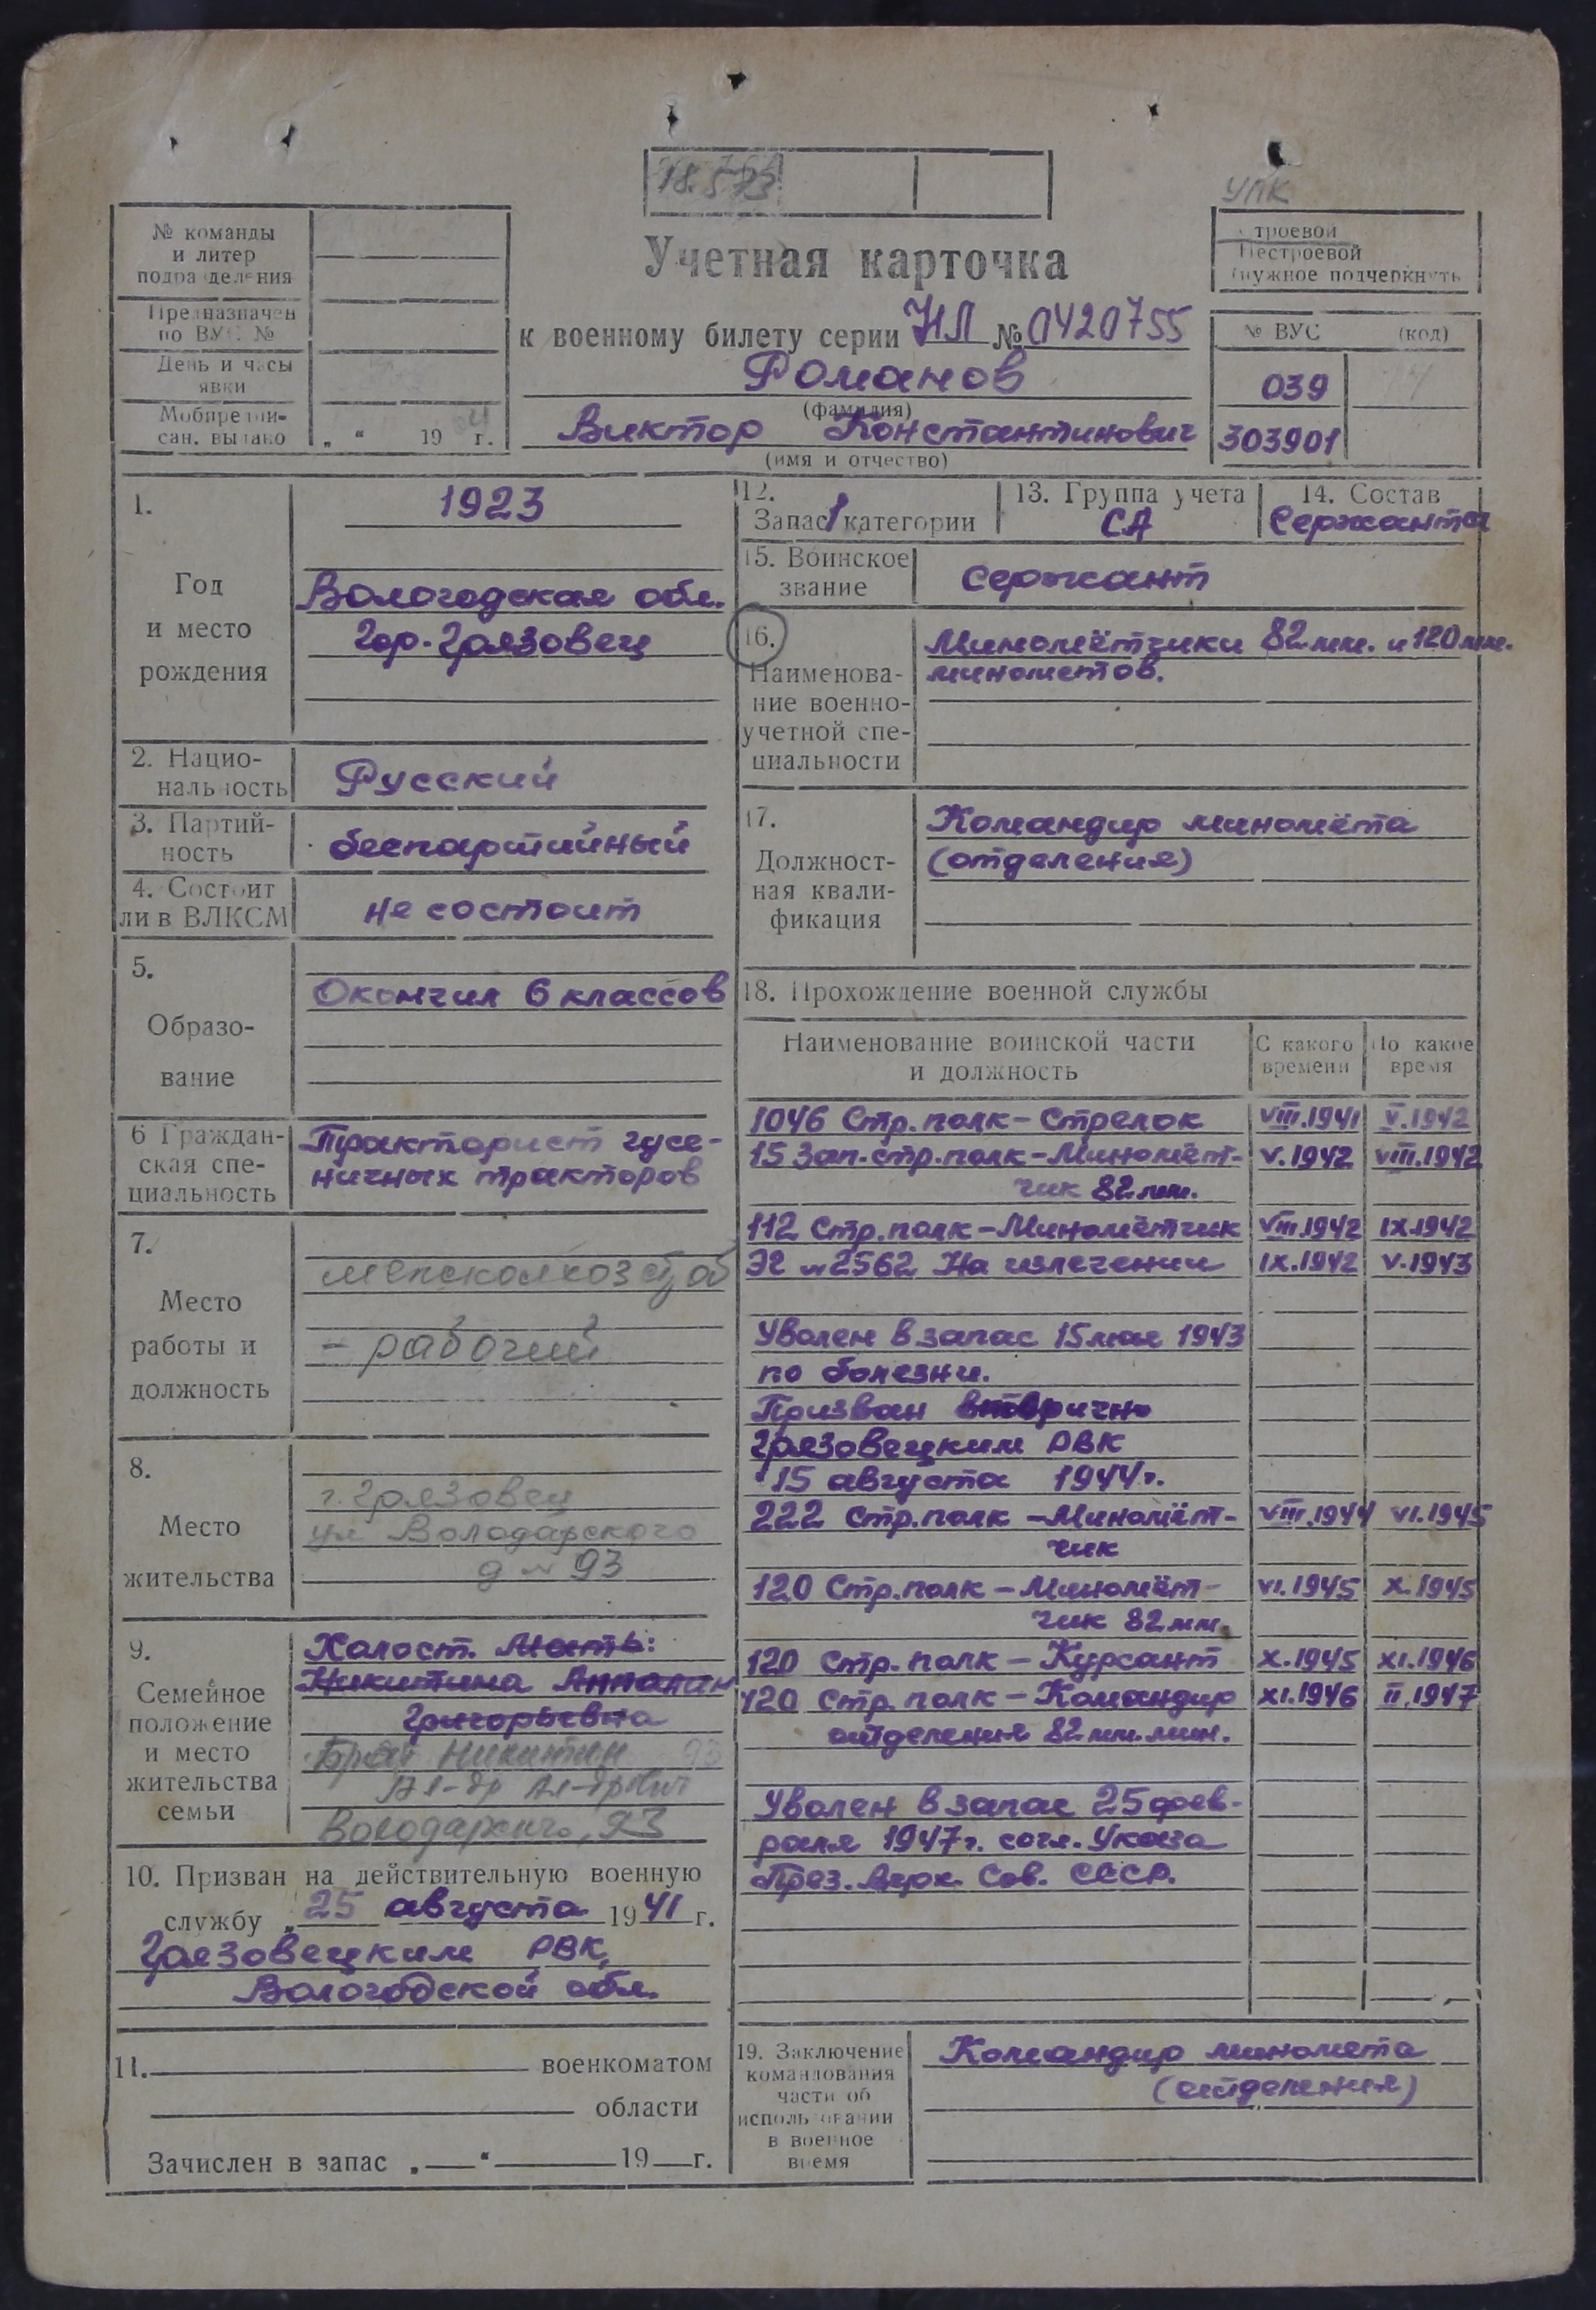 УПК
№ команды
и литер
подразделения
Предназначен
по ВУС №
День и часы
явки
Мобпредпи-
сан. выдано
„ “ 19 г.
Учетная карточка
к военному билету серии НЛ № 0420755
Романов
(фамилия)
Виктор Константинович
(имя и отчество)
Строевой
Нестроевой
(нужное подчеркнуть
№ ВУС (код)
039
303901
1.
Год
и место
рождения
1923
Вологодская обл.
Гор. Грязовец
2. Нацио-
нальность
Русский
3. Партий-
ность
беспартийный
4. Состоит
ли в ВЛКСМ
не состоит
5.
Образо-
вание
Окончил 6 классов
6 Граждан-
ская спе-
циальность
Тракторист гусе-
ничных тракторов
7.
Место
работы и
должность
- рабочий
8.
Место
жительства
г. Грязовец
ул Володарского
д № 93
9.
Семейное
положение
и место
жительства
семьи
Холост. Мать:
Никитина
Григорьевна
Брат Никитин
Ал-др Ал-дрович
Володарского, 93
10. Призван на действительную военную
службу „25 августа 1941 г.
Грязовецким РВК,
Вологодской обл.
11. военкоматом
области
Зачислен в запас „ “ 19 г.
12.
Запас 1 категории
13. Группа учета
СА
14. Состав
Сержанты
15. Воинское
звание
Сержант
16.
Наименова-
ние военно-
учетной спе-
циальности
Миномётчики 82 мм. и 120 мм.
минометов.
17.
Должност-
ная квали-
фикация
Командир миномёта
(отделения)
18. Прохождение военной службы
Наименование воинской части
и должность
С какого
времени
По какое
время
1046 Стр. полк - Стрелок VIII.1941 V.1942
15 Зап. стр. полк - Миномёт- V.1942 VIII.1942
чик 82 мм.
112 Стр. полк - Миномётчик VIII.1942 IX.1942
ЭГ № 2562 На излечении IX.1942 V.1943
Уволен в запас 15 мая 1943
по болезни.
Призван вторично
Грязовецким РВК
15 августа 1944 г.
222 Стр. полк - Миномёт- VIII.1944 VI.1945
чик
120 Стр. полк - Миномёт- VI.1945 X.1945
чик 82 мм.
120 Стр. полк - Курсант X.1945 XI.1946
120 Стр. полк - Командир XI.1946 II.1947
отделения 82 мм. мин.
Уволен в запас 25 фев-
раля 1947 г. согл. Указа
През. Верх. Сов. СССР.
19. Заключение
командования
части об
использовании
в военное
время
Командир миномета
(отделения)